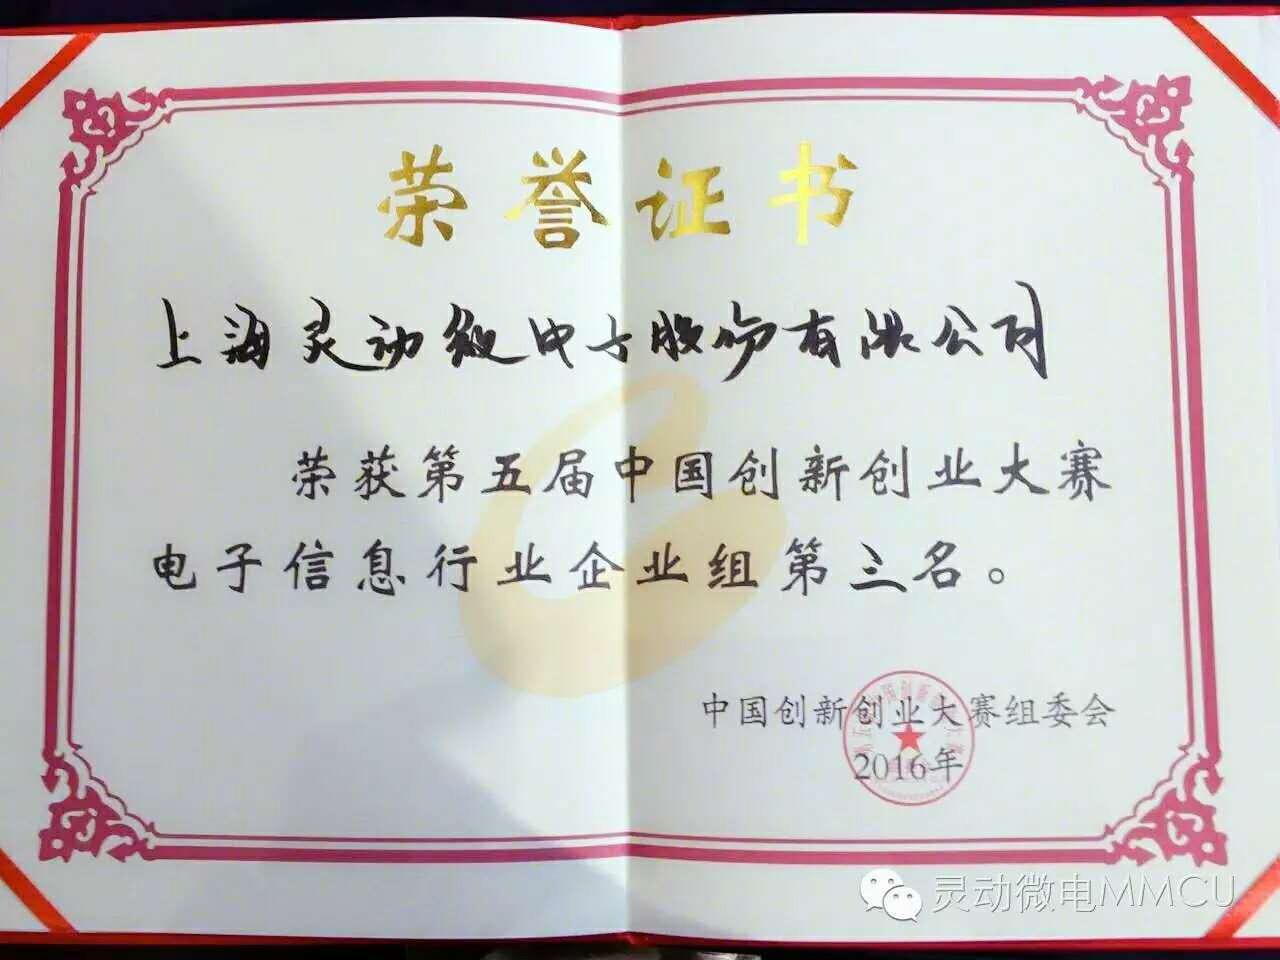 荣誉证书
上海灵动微电子股份有限公司
荣获第五届中国创新创业大赛
电子信息行业企业组第三名。
中国创新创业大赛组委会
2016年
灵动微电MMCU